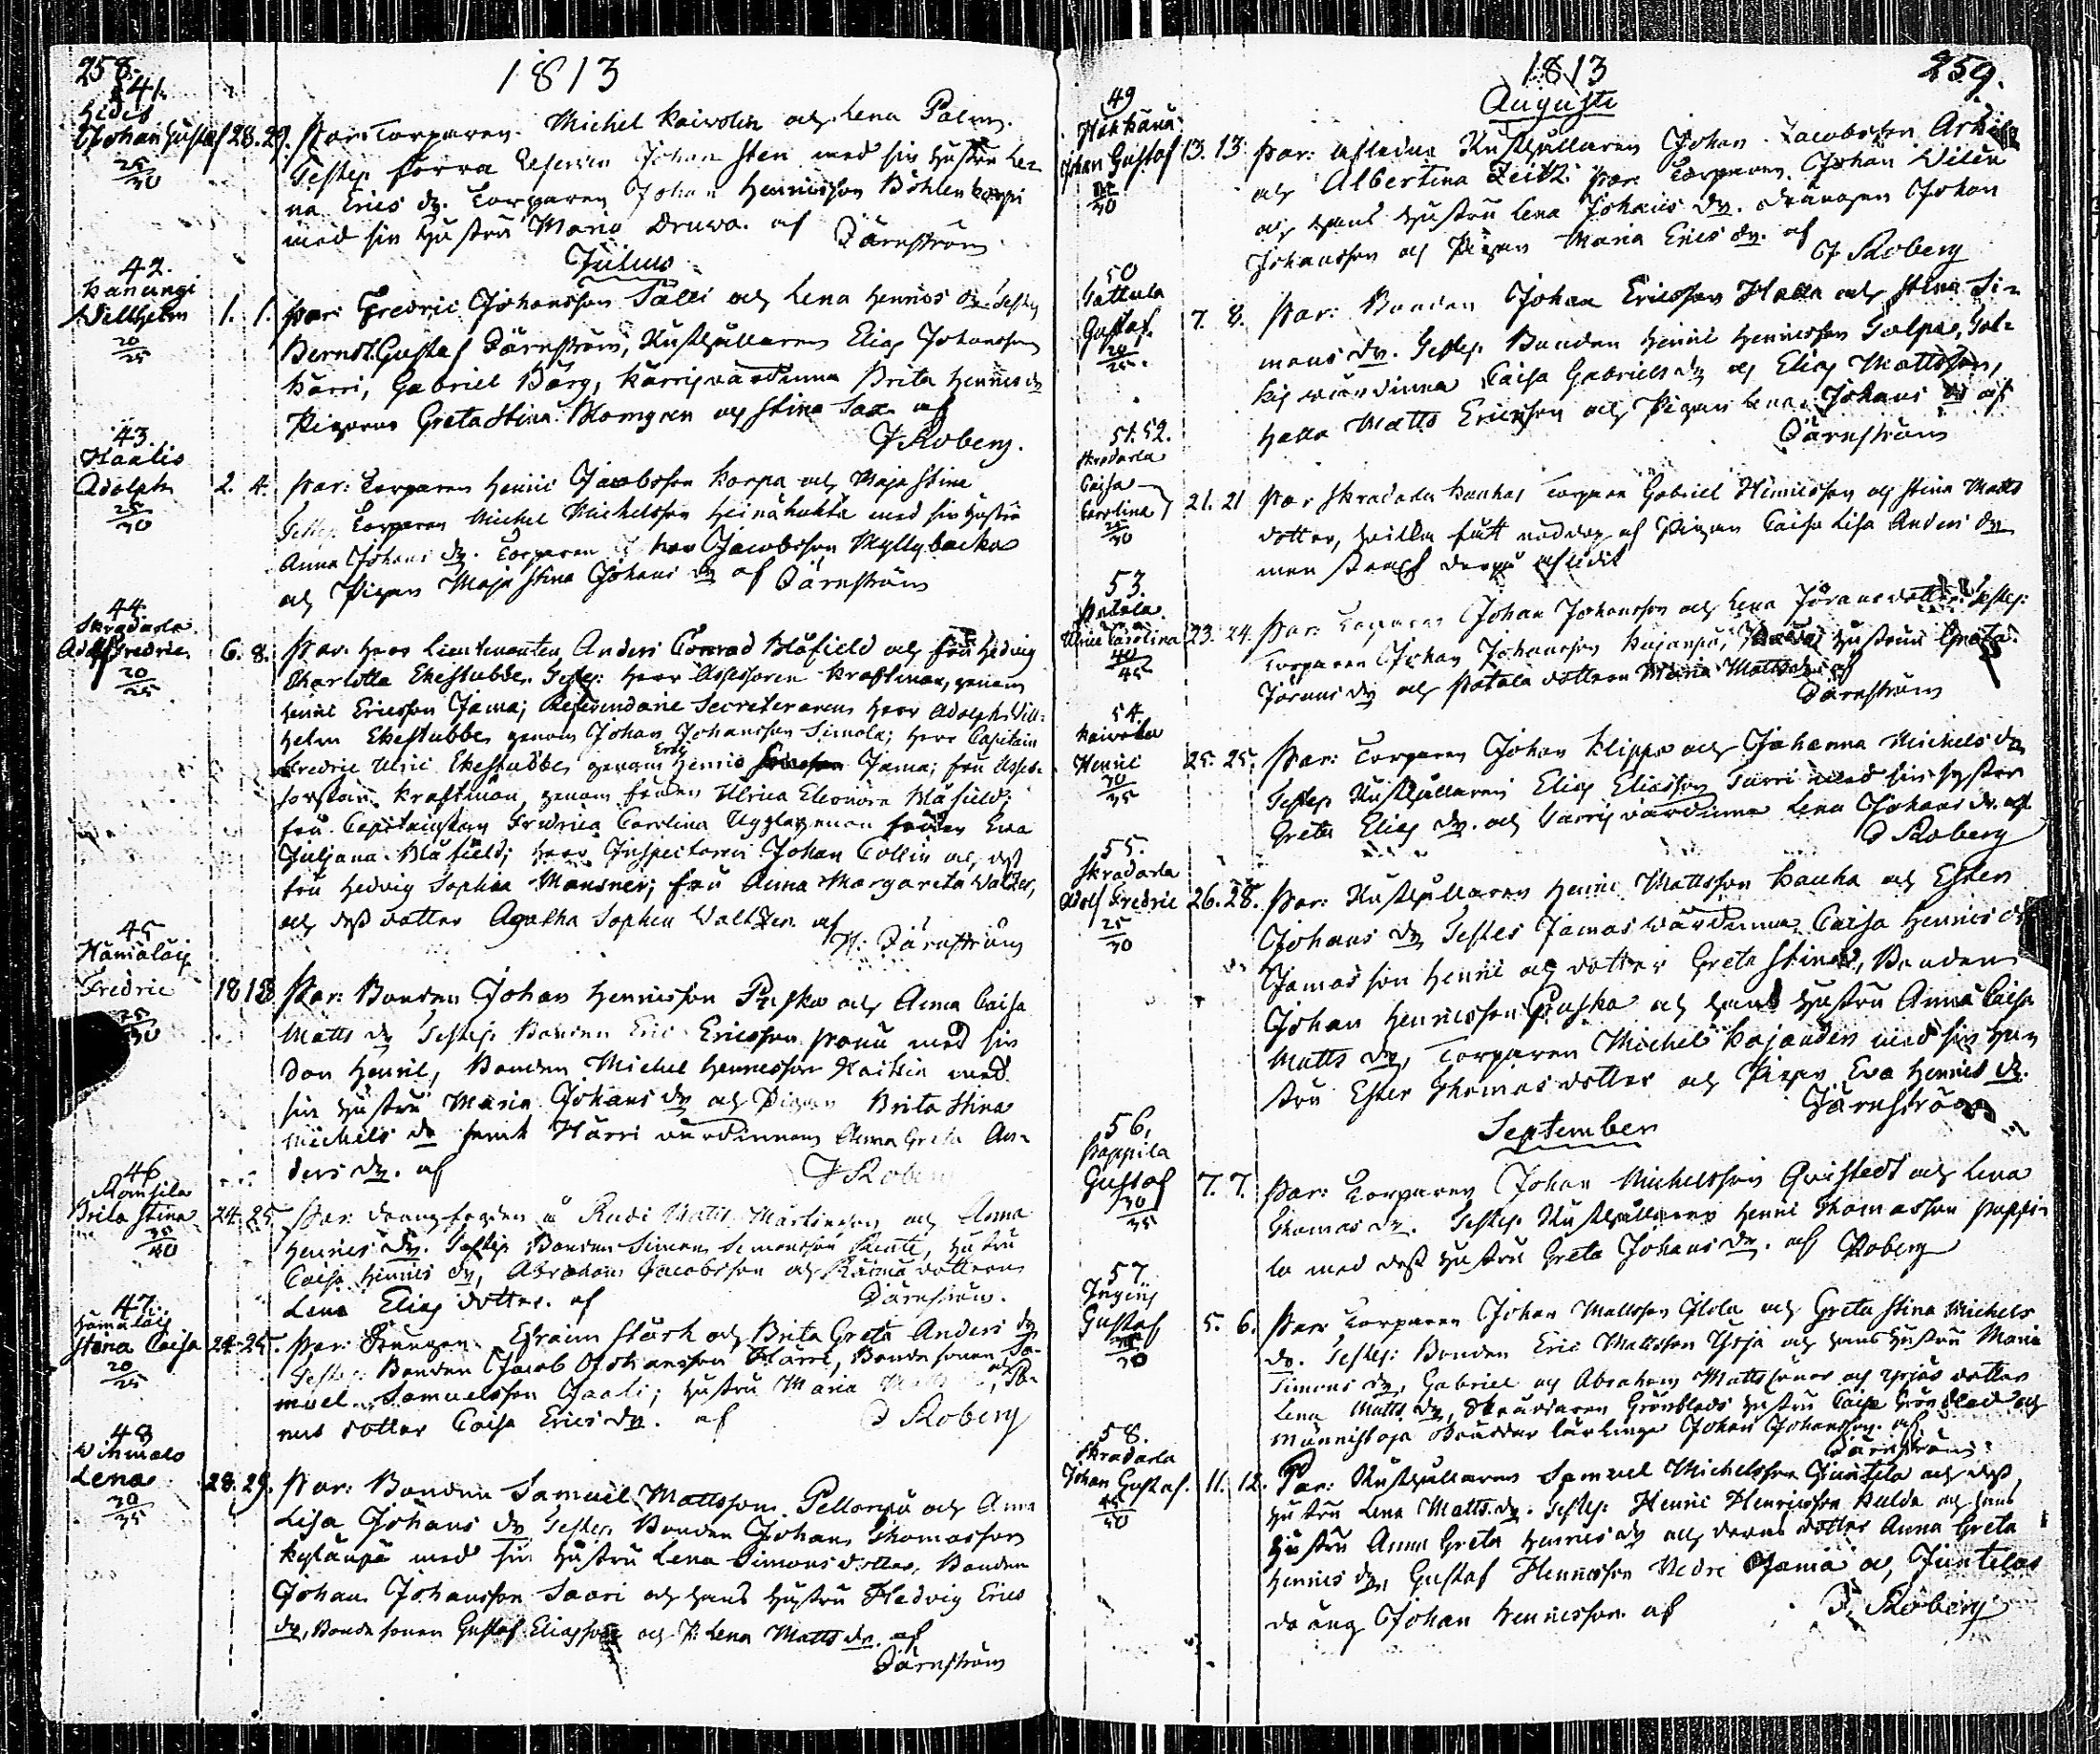 258.
1813
41.
Hedis
Johan Gustaf 28. 29. Par: Torparen Michel Kaivolin och Lena Palm.
25/30
Testes förra Johan Sten med sin hustru Le-
na Erics dr. Torparen Johan Henricsson Böhlen
med sin hustru Maria Druwa. af
Därnström
Julius
42.
Kanungi
Willhelm 1. 1. Par: Fredric Johansson Sälli och Lena Henrics dr Testes
20/25
Berndt Gustaf Därnström, Rusthållaren Elias Johansson
Kärri, Gabriel Bärg, Kärris värdinna Brita Henrics dr
Pigorna Greta Stina Blomgren och Stina Sax af
J Roberg.
43.
Haalis
Adolph 2. 4. Par: Torparen Henric Jacobsson Korpa och Maja Stina
25/30
Testes Torparen Michel Michelsson Heinähuhta med sin hustru
Anna Johans dr. Torparen Jacobsson Myllybacka
och Pigan Maja Stina Johans dr af Därnström
44.
Skradarla
Adolf Fredric. 6. 8. Par: Herr Lieutenanten Anders Conrad Blåfield och fru Hedvig
20/25
Charlotta Ekestubbe. Testes: Herr Assessoren Kraftman, genom
Henric Ericsson Jama; Referendarie Secreteraren Herr Adolph Will-
helm Ekestubbe genom Johan Johansson Simola; Herr Capitain
Fredric Ulric Ekestubbe, genom Henric Ericss Jama; fru Asses-
sorskan Kraftman, genom fröken Ulrica Eleonora Blåfield;
fru Capitainskan Fredrica Carolina Uggla genom fröken Eva
Juljana Blåfield; Herr Inspectoren Johan Collin och dess
fru Hedvig Sophia Mansner; fru Anna Margareta Waltzer,
och dess dotter Agatha Sophia Waltzer. af
H: Därnström
45
Hämäläis
Fredric 18 18 Par: Bonden Johan Henricsson Puska och Anna Caisa
25/30
Matts dr Testes Bonden Eric Ericsson med sin
Son Henric, Bonden Michel Henricsson med
sin hustru Maria Johans dr och Pigan Brita Stina
Michels dr samt Härri värdinnan Anna Greta An-
ders dr. af
J Roberg
46
Brita Stina 24. 25. Par: å Rudi Matts Mårtensson och Anna
35/40
Henrics dr. Testes Bonden Simon Simonsson, hustru
Caisa Henrics dr, Abraham Jacobsson och dottern
Lena Elias dotter. af
Därnström.
47.
Hämäläis
Stina Caisa 24. 25. Par: Drängen Efraim Stark och Brita Greta Anders dr
20/25
Testes Bonden Jacob Johansson Härri, Bondesonen Sa-
muel Samuelsson Jaali; hustru Maria
dotter Caisa Erics dr. af J Roberg
48
Lena 28. 29. Par: Bonden Samuel Mattsson Pellonpä och Anna
30/35
Lisa Johans dr Testes Bonden Johan Thomasson
Kylänpä med sin hustru Lena Simons dotter, Bonden
Johan Johansson Saari och hans hustru Hedvig Erics
dr, Bondesonen Gustaf Eliasson och P: Lena Matts dr. af
Därnström
1813
259.
Augusti
49
Johan Gustaf 13. 13 Par: afledne Rusthållaren Johan Jacobsson
och Albertina Zeitz. Torparen Johan Wilén
och hans hustru Lena Johans dr. Drängen Johan
Johansson och Pigan Maria Erics dr. af
J Roberg
50
Gustaf. 7. 8. Par: Bonden Johan Ericsson Halla och Stina Si-
20/25.
mons dr. Testes. Bonden Henric Henricsson
värdinna Caisa Gabriels dr och Elias Mattsson,
Halla Matts Ericsson och Pigan Lena Johans dr af
Därnström
51. 52.
Skradarla
Caisa
Carolina } 21. 21 Par Skradarla Torparen Gabriel Henricsson och Stina Matts
25/30
dotter, hvilka fått nöddop af Pigan Caisa Lisa Anders dr
men straxt derpå aflidit
53.
Patala
Ulric Carolina 23. 24. Par: Torparen Johan Johansson och Lena Jörans dotter. Testes:
40/45
Torparen Johan Johansson, hustrun Greta
Jörans dr och Patala dottern Maria Matts dr af
Därnström
54.
Kaivola
Henric 25. 25. Par: Torparen Johan Klippa och Johanna Michels dr
30/35
Testes Rusthållaren Elias Eliasson Sarri med sin syster
Greta Elias dr. och Sarris värdinna Lena Johans dr. af
J Roberg
55.
Skradarla
Adolf Fredric 26. 28. Par: Rusthållaren Henric Mattsson Kauha och Ester
25/30
Johans dr Testes Jamas värdinna Caisa Henrics dr
Jamas son Henric och dotter Greta Stina, Bonden
Johan Henricsson Puska och hans hustru Anna Caisa
Matts dr, Torparen Michel Kajander med sin hu-
stru Ester Thomas dotter och Pigan Eva Henrics dr.
Därnström
September
56.
Pappila
Gustaf 7. 7. Par: Torparen Johan Michelsson Qvistedt och Lena
30/35
Thomas dr. Testes. Rusthållaren Henric Thomasson Pappi-
la med dess hustru Greta Johans dr. af Roberg
57
Gustaf 5. 6. Par: Torparen Johan Mattsson och Greta Stina Michels
dr. Testes: Bonden Eric Mattsson Yrjä och hans hustru Maria
Simons dr, Gabriel och Abraham Matts söner och Yrjäs dotter
Lena Matts dr, Skräddaren Grönblads hustru Caisa Grönblad och
Männistöjä skräddar lärlinge Johan Johansson af
Därnström
58.
Skradarla
Johan Gustaf. 11. 12. Par: Rusthållaren Samuel Michelsson Juntila och dess
45/50
hustru Lena Matts dr. Testes. Henric Henricsson och hans
hustru Anna Greta Henrics dr och deras dotter Anna Greta
Henrics dr, Gustaf Henricsson Nedre Jama och Juntilas
dräng Johan Henricsson af J. Roberg